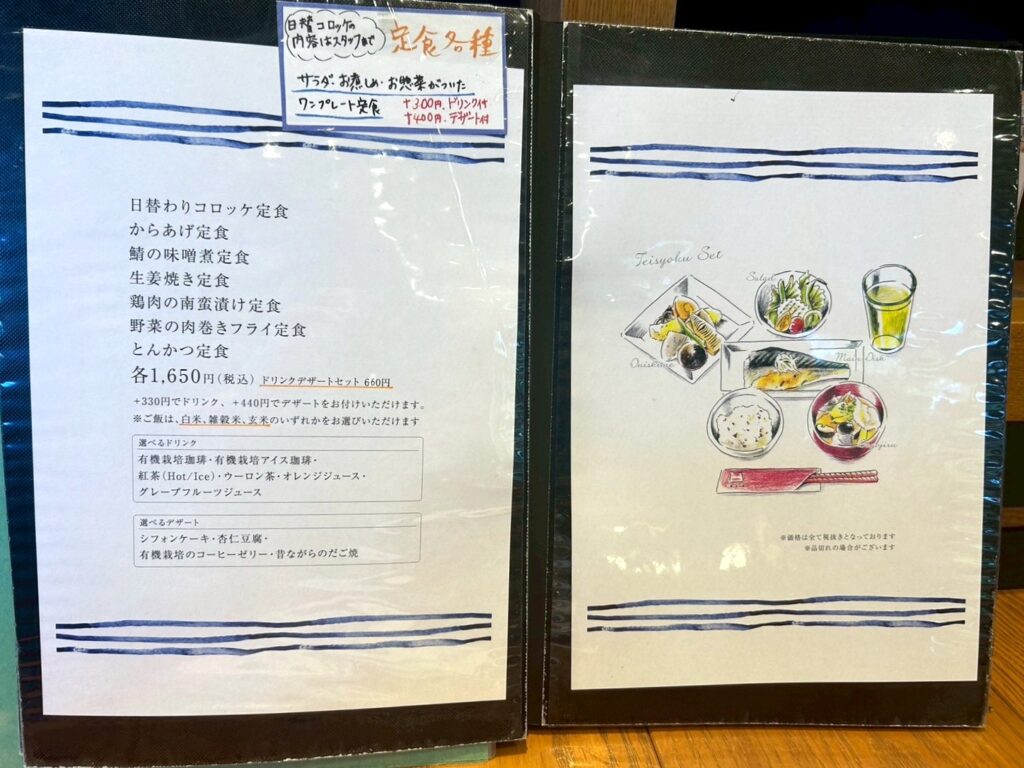 日替コロッケの
内容はスタッフまで
定食各種
サラダ・お煮しめ・お惣菜がついた
ワンプレート定食
+300円.ドリンク付
+400円.デザート付
日替わりコロッケ定食
からあげ定食
鯖の味噌煮定食
生姜焼き定食
鶏肉の南蛮漬け定食
野菜の肉巻きフライ定食
とんかつ定食
各1,650円(税込) ドリンクデザートセット 660円
+330円でドリンク、+440円でデザートをお付けいただけます。
※ご飯は、白米、雑穀米、玄米のいずれかをお選びいただけます
選べるドリンク
有機栽培珈琲・有機栽培アイス珈琲・
紅茶(Hot/Ice)・ウーロン茶・オレンジジュース・
グレープフルーツジュース
選べるデザート
シフォンケーキ・杏仁豆腐・
有機栽培のコーヒーゼリー・昔ながらのだご焼
Teisyoku Set
Main Dish
※価格は全て税抜きとなっております
※品切れの場合がございます